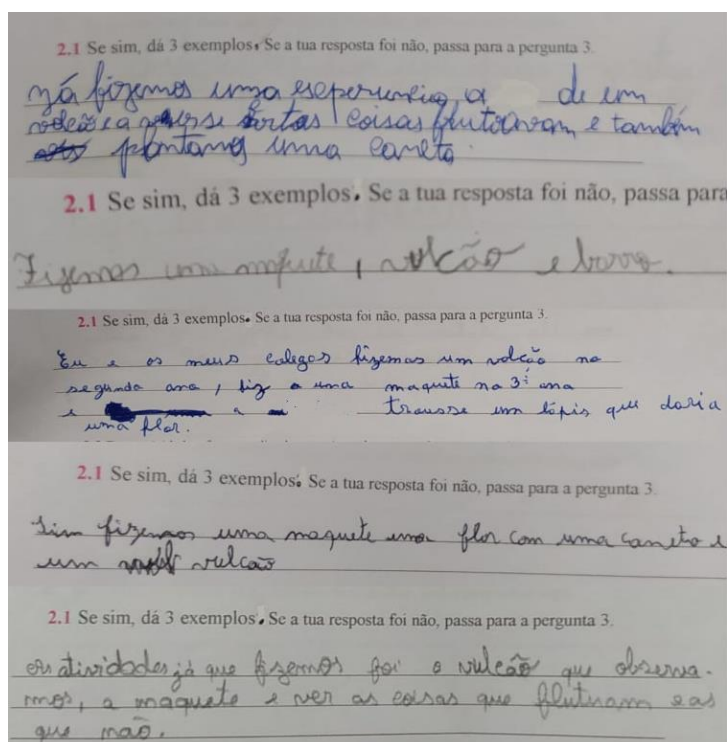 2.1 Se sim, dá 3 exemplos. Se a tua resposta foi não, passa para a pergunta 3.
já fizemos uma a de um
e a se coisas e também
uma caneta.
2.1 Se sim, dá 3 exemplos. Se a tua resposta foi não, passa para
Fizemos uma , vulcão e barro.
2.1 Se sim, dá 3 exemplos. Se a tua resposta foi não, passa para a pergunta 3.
Eu e os meus colegas fizemos um volcão no
segundo ano, fiz a uma maquete no 3º ano
e a trousse um lápis que daria
uma flor.
2.1 Se sim, dá 3 exemplos. Se a tua resposta foi não, passa para a pergunta 3.
Sim fizemos uma maquete uma flor com uma caneta e
um vulcão
2.1 Se sim, dá 3 exemplos. Se a tua resposta foi não, passa para a pergunta 3.
atividades já que fizemos foi o vulcão que observa-
mos, a maquete e ver as coisas que flutuam e as
que não.